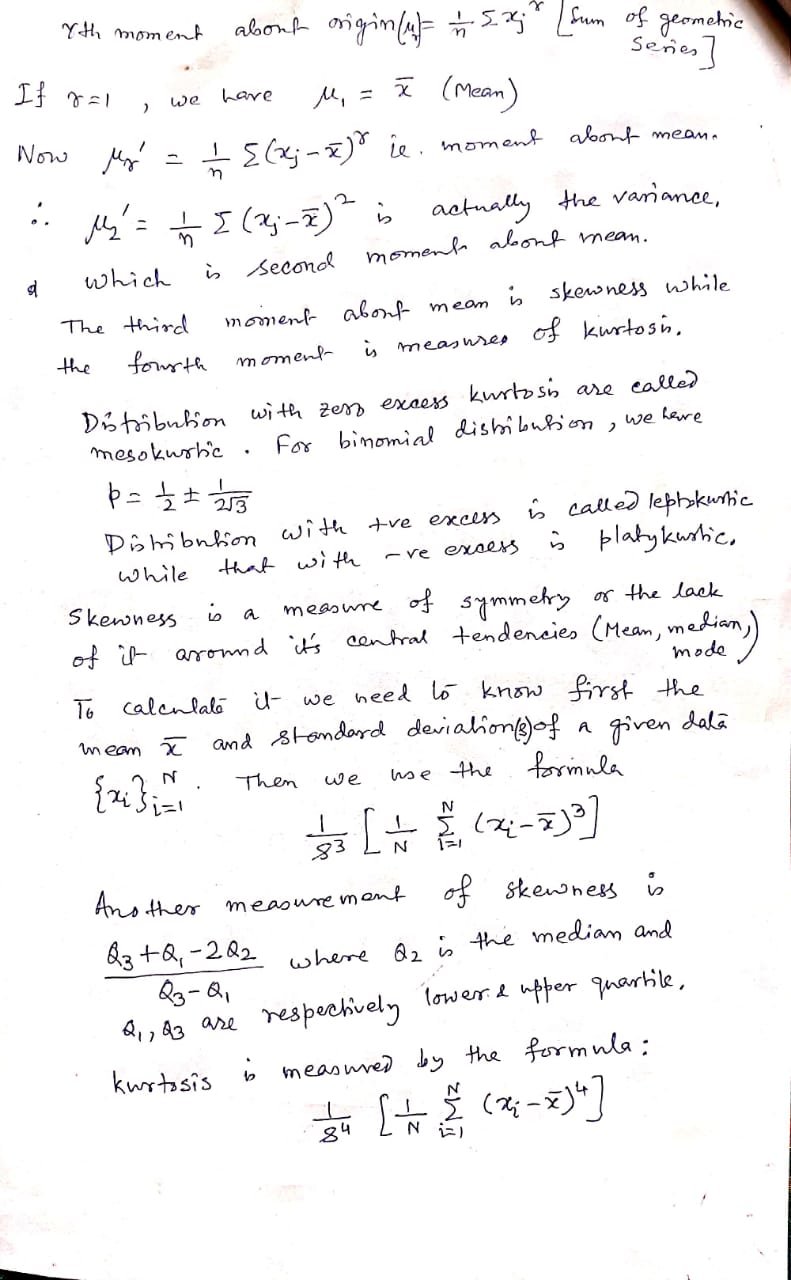 rth moment about origin(μr)= 1/n Σxj^r [Sum of geometric
Series]
If r=1, we have μ₁ = x̄ (Mean)
Now μr' = 1/n Σ(xj-x̄)^r ie. moment about mean.
∴ μ₂' = 1/n Σ(xj-x̄)² is actually the variance,
which is second moment about mean.
The third moment about mean is skewness while
the fourth moment is measures of kurtosis.
Distribution with zero excess kurtosis are called
mesokurtic. For binomial distribution, we have
p = 1/2 ± 1/2√3
Distribution with +ve excess is called leptokurtic
while that with -ve excess is platykurtic.
Skewness is a measure of symmetry or the lack
of it around it's central tendencies (Mean, median,
mode)
To calculate it we need to know first the
mean x̄ and standard deviation(s) of a given data
{xi}ᴺi=1. Then we use the formula
1/s³ [1/N Σᴺi=1 (xi-x̄)³]
Another measurement of skewness is
Q₃+Q₁-2Q₂/Q₃-Q₁ where Q₂ is the median and
Q₁, Q₃ are respectively lower & upper quartile.
kurtosis is measured by the formula:
1/s⁴ [1/N Σᴺi=1 (xi-x̄)⁴]